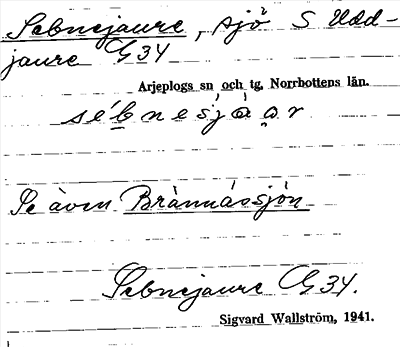 Sebnejaure, sjö S Udd-
jaure G34
Arjeplogs sn och tg, Norrbottens län.
Se även Brännässjön
Sebnejaure G34.
Sigvard Wallström, 1941.